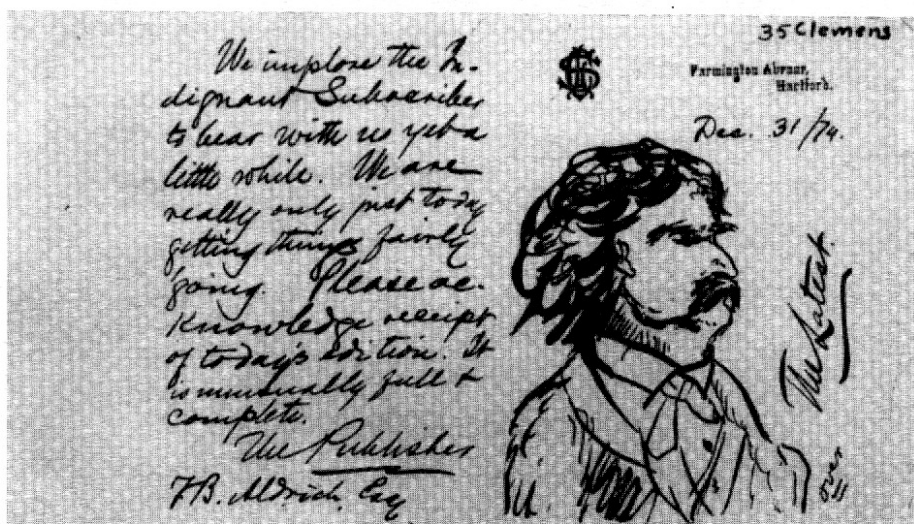 We implore the In-
dignant Subscriber
to bear with us yet a
little while. We are
really only just today
getting things fairly
going. Please ac-
knowledge receipt
of today's edition. It
is unusually full &
complete.
The Publisher
T.B. Aldrich, Esq
35 Clemens
Farmington Avenue,
Hartford.
Dec. 31/74.
The Latest.
over